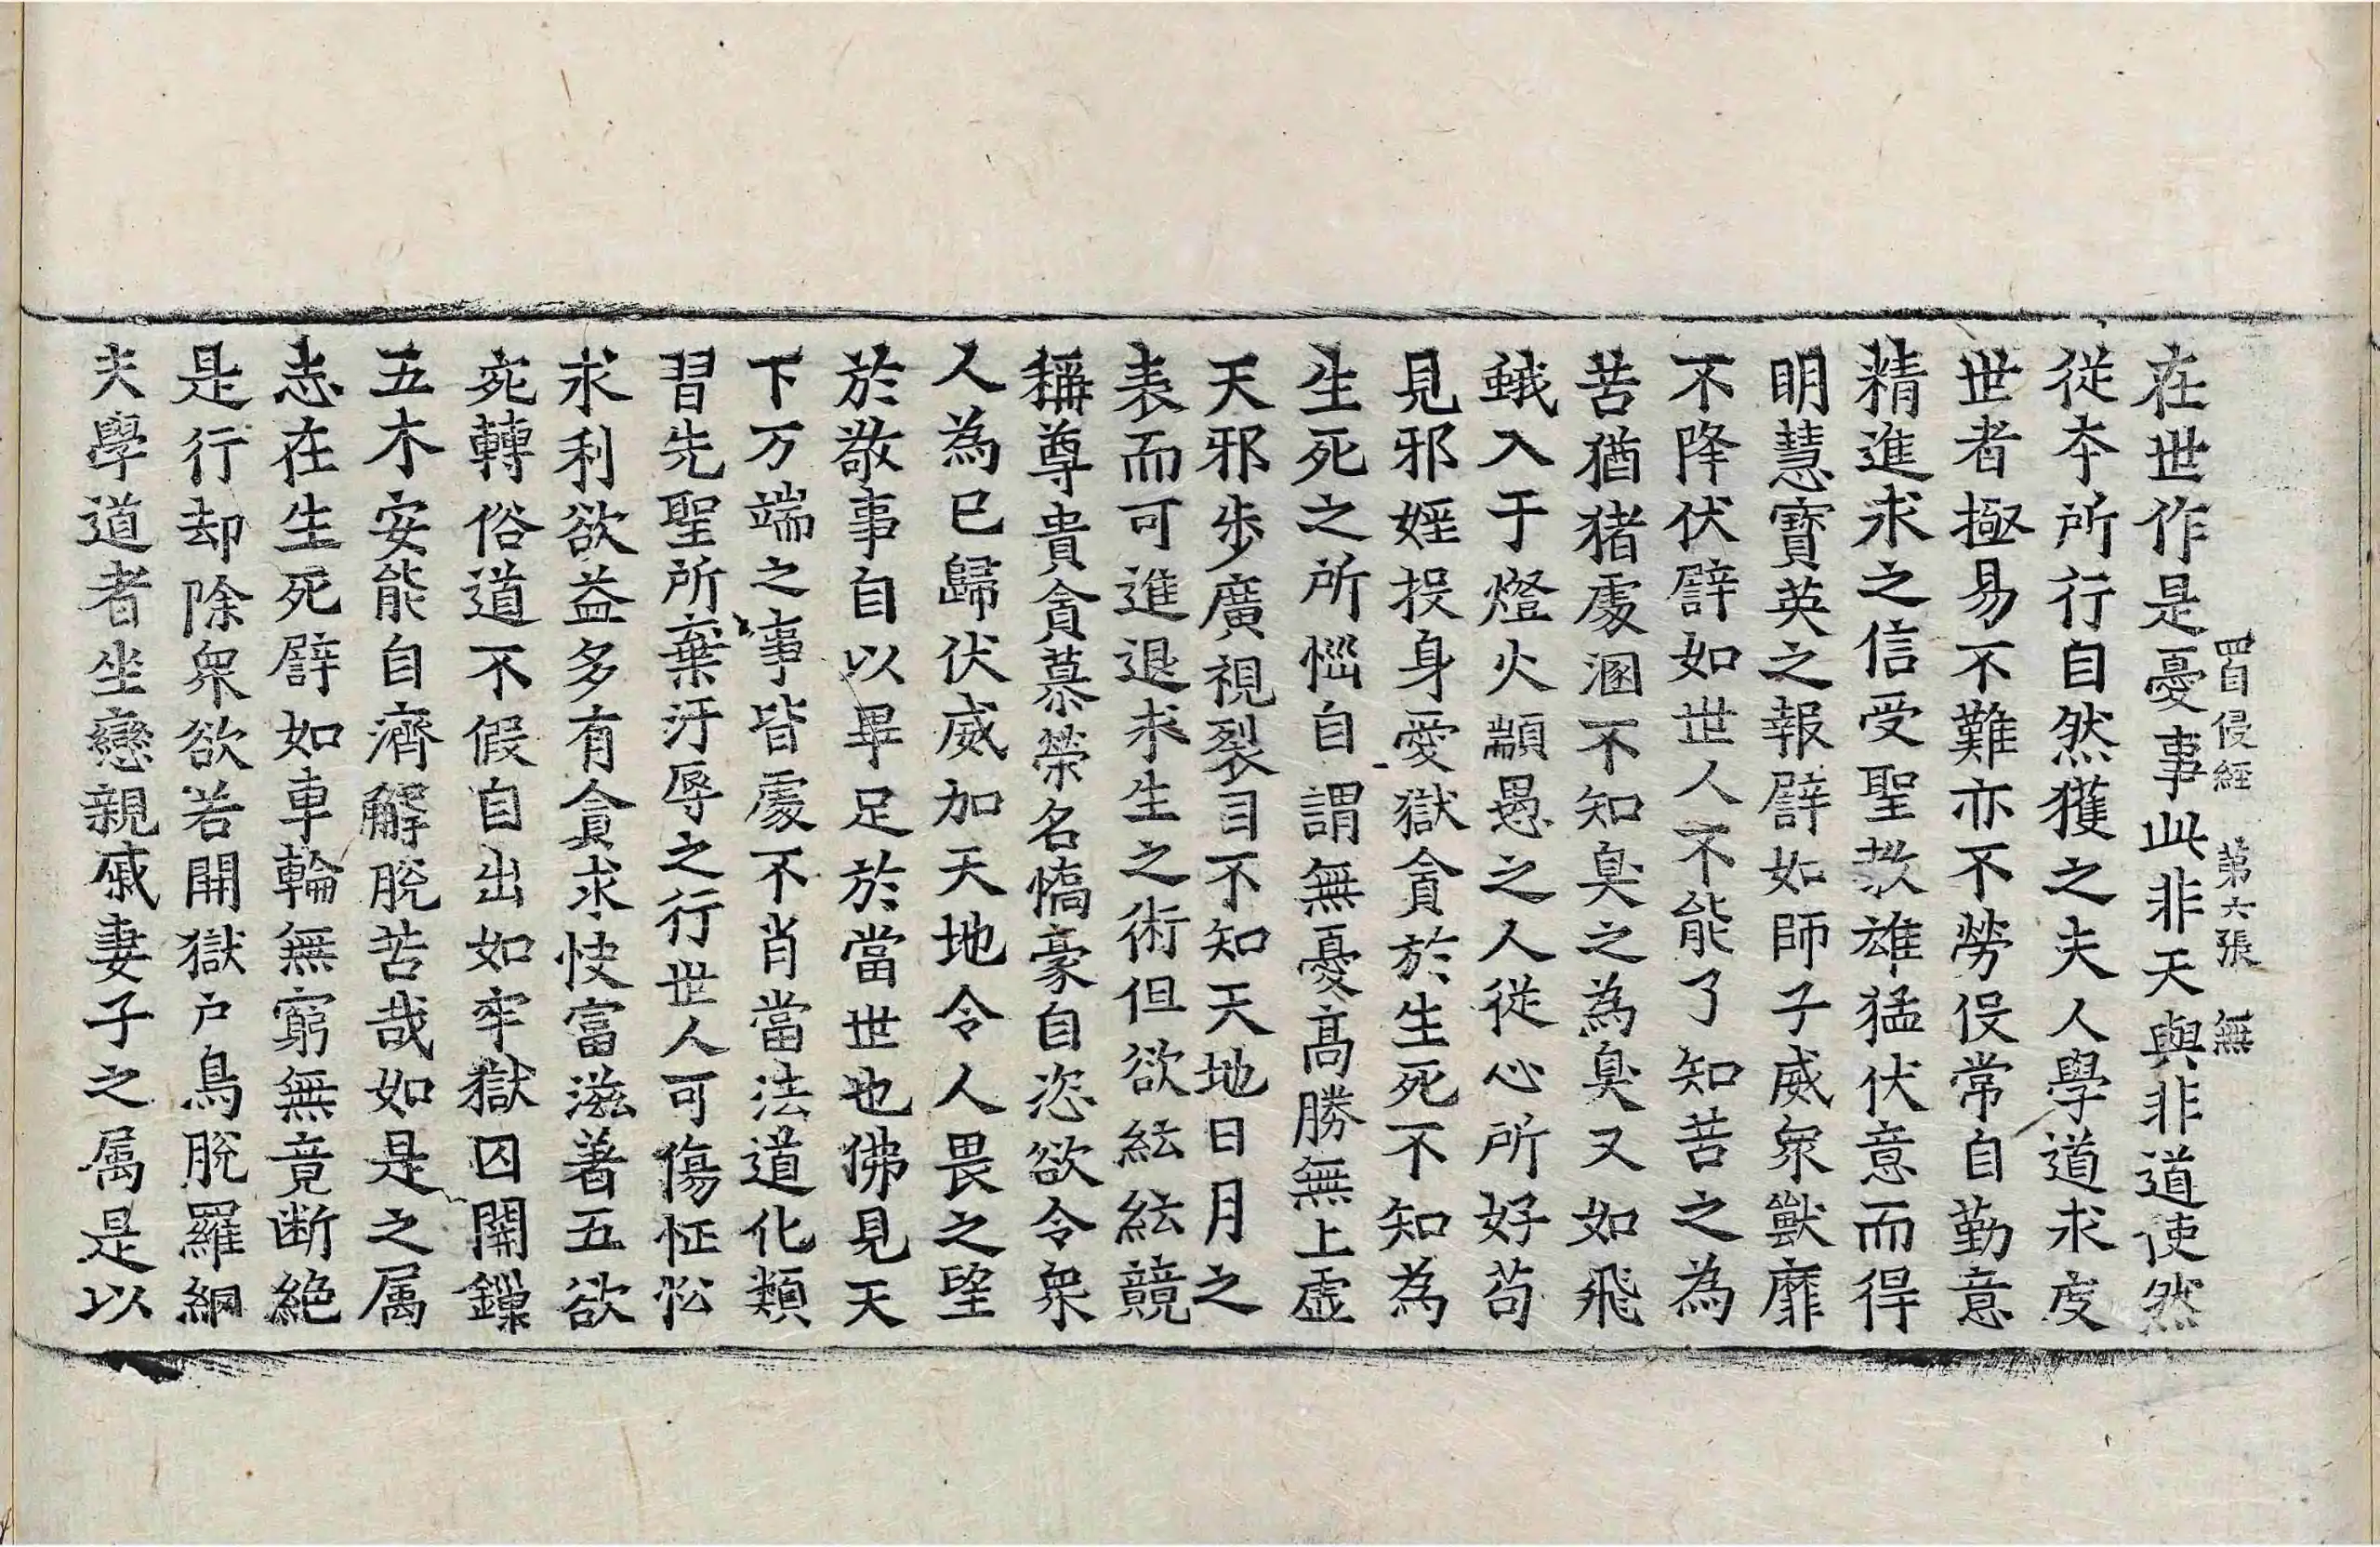 罪福經　第六張　無
在世作是憂事此非天與非道使然
從夲所行自然獲之夫人學道求度
世者極易不難亦不勞伇常自勤意
精進求之信受聖教雄猛伏意而得
明慧寶英之報譬如師子威衆獸靡
不降伏譬如世人不能了知苦之為
苦猶猪處溷不知臭之為臭又如飛
蛾入于燈火顓愚之人從心所好苟
見邪婬投身愛獄貪於生死不知為
生死之所惱自謂無憂髙勝無上虛
天邪步廣視裂目不知天地日月之
表而可進退求生之術但欲紜紜競
稱尊貴貪慕榮名憍豪自恣欲令衆
人為已歸伏威加天地令人畏之望
於敬事自以畢足於當世也佛見天
下万端之事皆處不肖當法道化類
習先聖所棄汙辱之行世人可傷怔忪
求利欲益多有貪求快富滋著五欲
宛轉俗道不假自出如牢獄囚關鏁
五木安能自濟解脫苦哉如是之属
恚在生死譬如車輪無窮無竟断絶
是行却除衆欲若開獄户鳥脫羅網
夫學道者坐戀親戚妻子之属是以